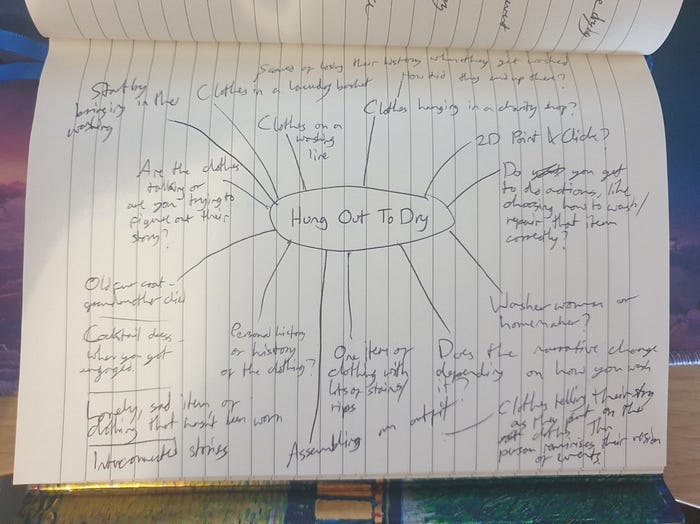 Scared of losing their history when they get washed
How did they end up there?
Start by
bringing in the
washing
Clothes in a laundry basket
Clothes on a
washing
line
Clothes hanging in a charity shop?
2D Point & Click?
Are the clothes
talking or
are you trying to
figure out their
story?
Do you get
to do actions, like
choosing how to wash/
repair that item
correctly?
Hung Out To Dry
Old fur coat -
grandmother died
Cocktail dress -
when you got
engaged.
Lonely, sad item of
clothing that hasn't been worn
Interconnected stories
Personal history
or history
of the clothing?
Assembling an outfit
One item of
clothing with
lots of stains/
rips
Washer woman or
homemaker?
Does the narrative change
depending on how you wash
it?
Clothes telling their story
as they put on the
clothes. The
person reminisces their version
of events.